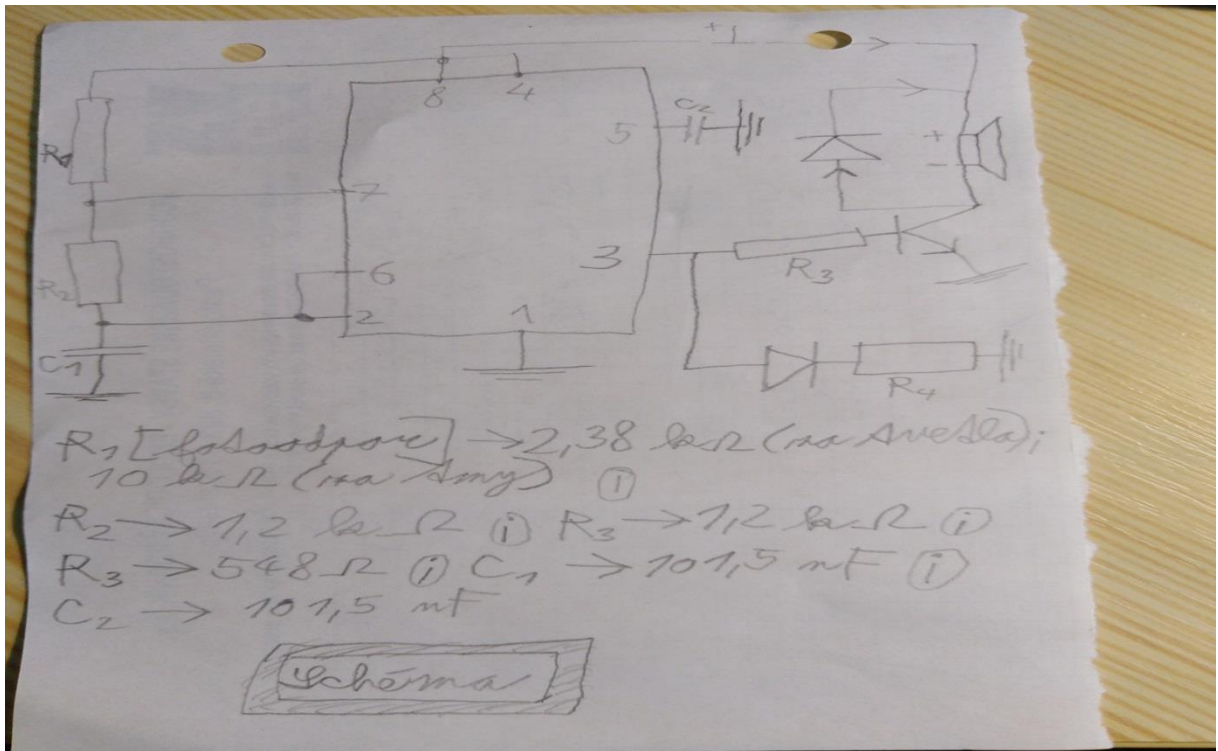 +1
8 4
C2
5
+
R1
7
-
3
R3
R2
6
2
1
C1
R4
R1 [fotoodpor] → 2,38 kΩ (na svetla);
10 kΩ (na tmy) ;
R2 → 1,2 kΩ ; R3 → 1,2 kΩ ;
R3 → 548Ω ; C1 → 101,5 nF ;
C2 → 101,5 nF
Schéma